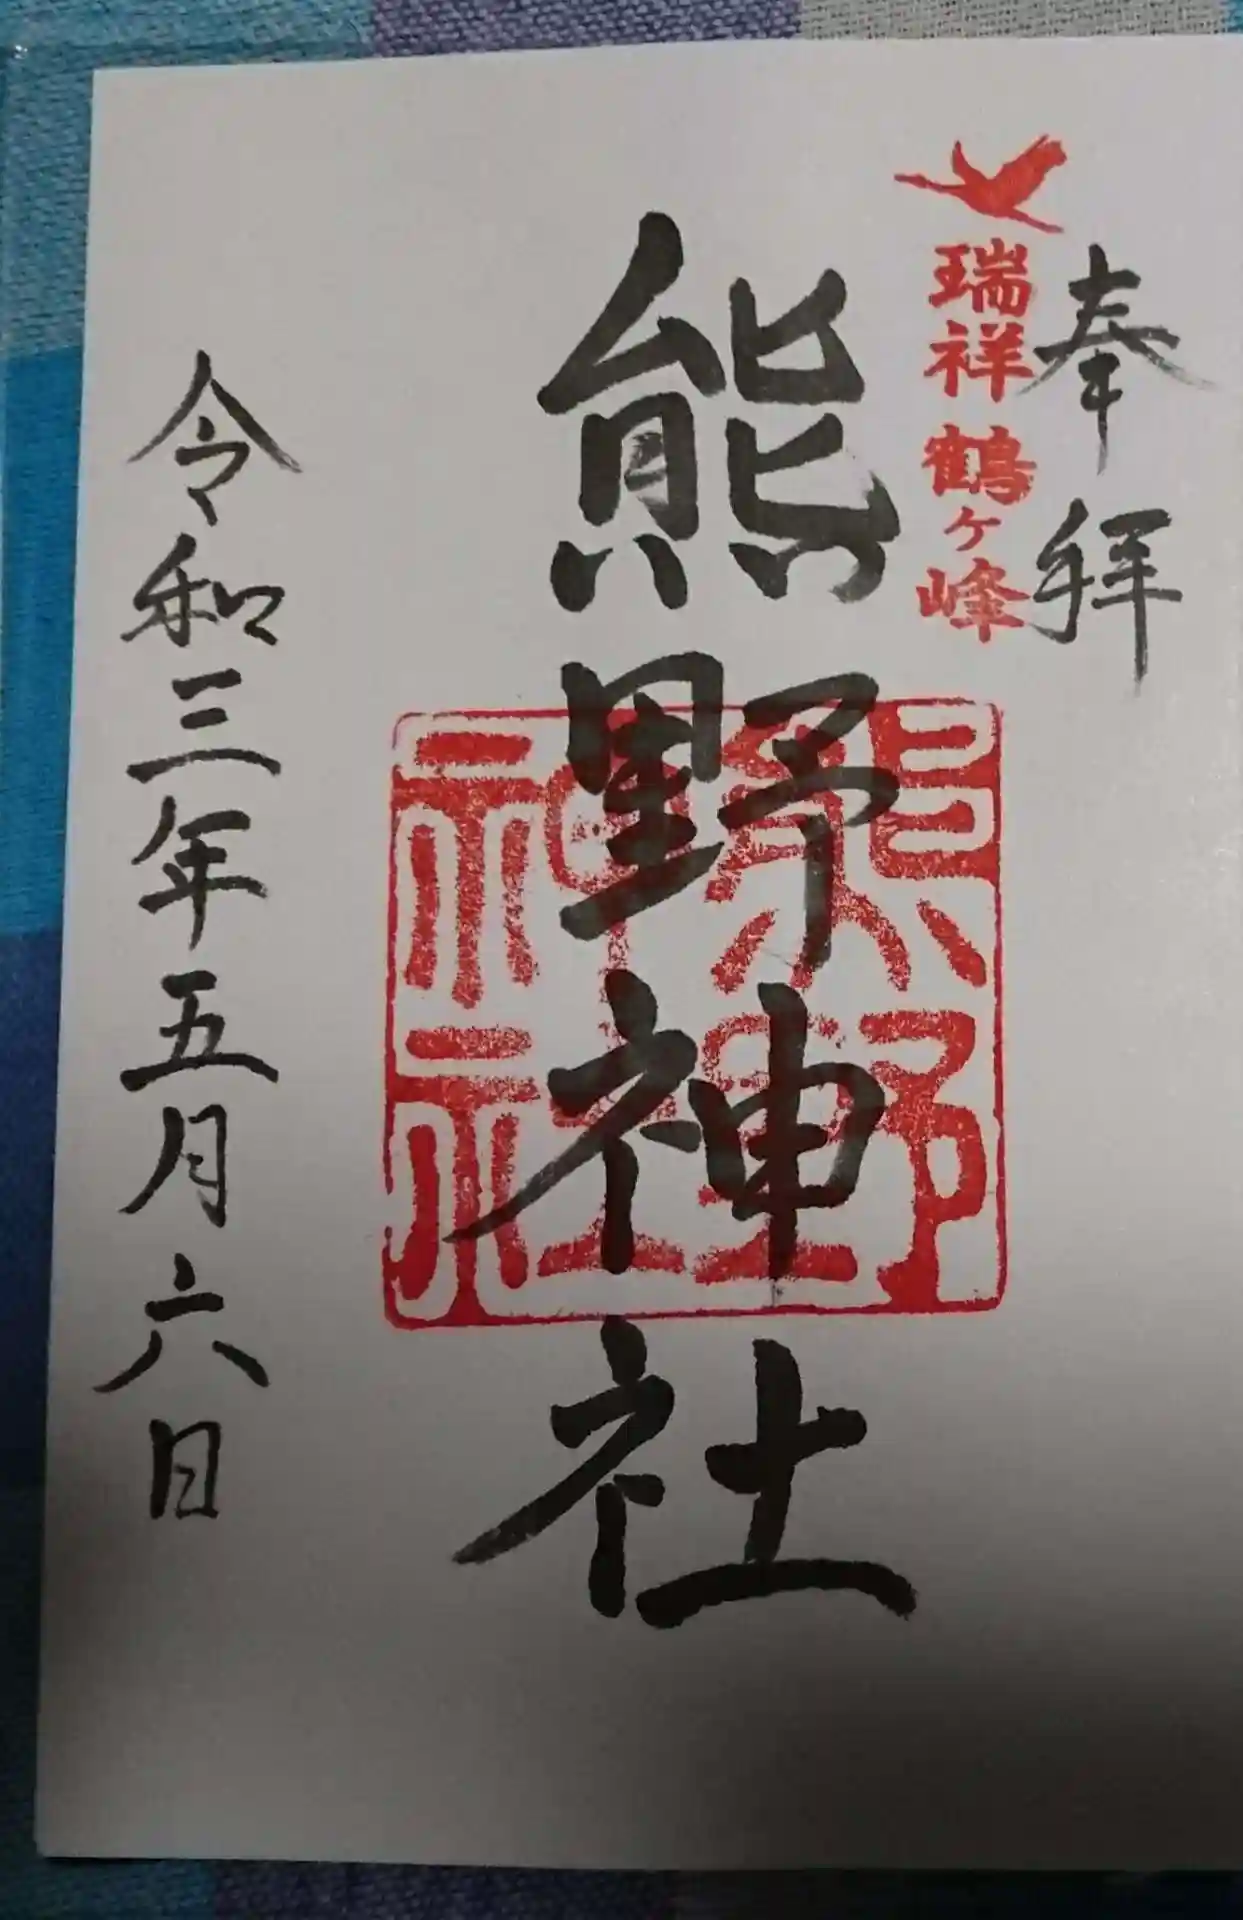 奉拝
瑞祥 鶴ヶ峰
熊野神社
熊野
神社
令和三年五月六日